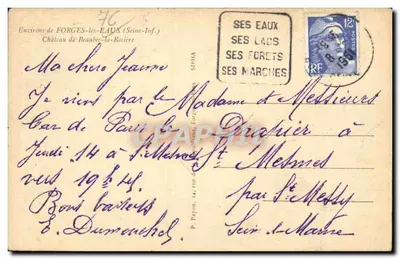 76
Environs de FORGES-les-EAUX (Seine-Inf.)
Château de Beaubec-la-Rosière
SES EAUX
SES LACS
SES FORETS
SES MARCHES
12F
RF
Ma chère Jeanne
Je viens par le
Car de Paris le
Jeudi 14 à St Mesmes
vers 19h45
Bons baisers
E. Dumouchel
Madame et Messieurs
Drapier à
St. Mesmes
par St Messy
Sein. et. Marne